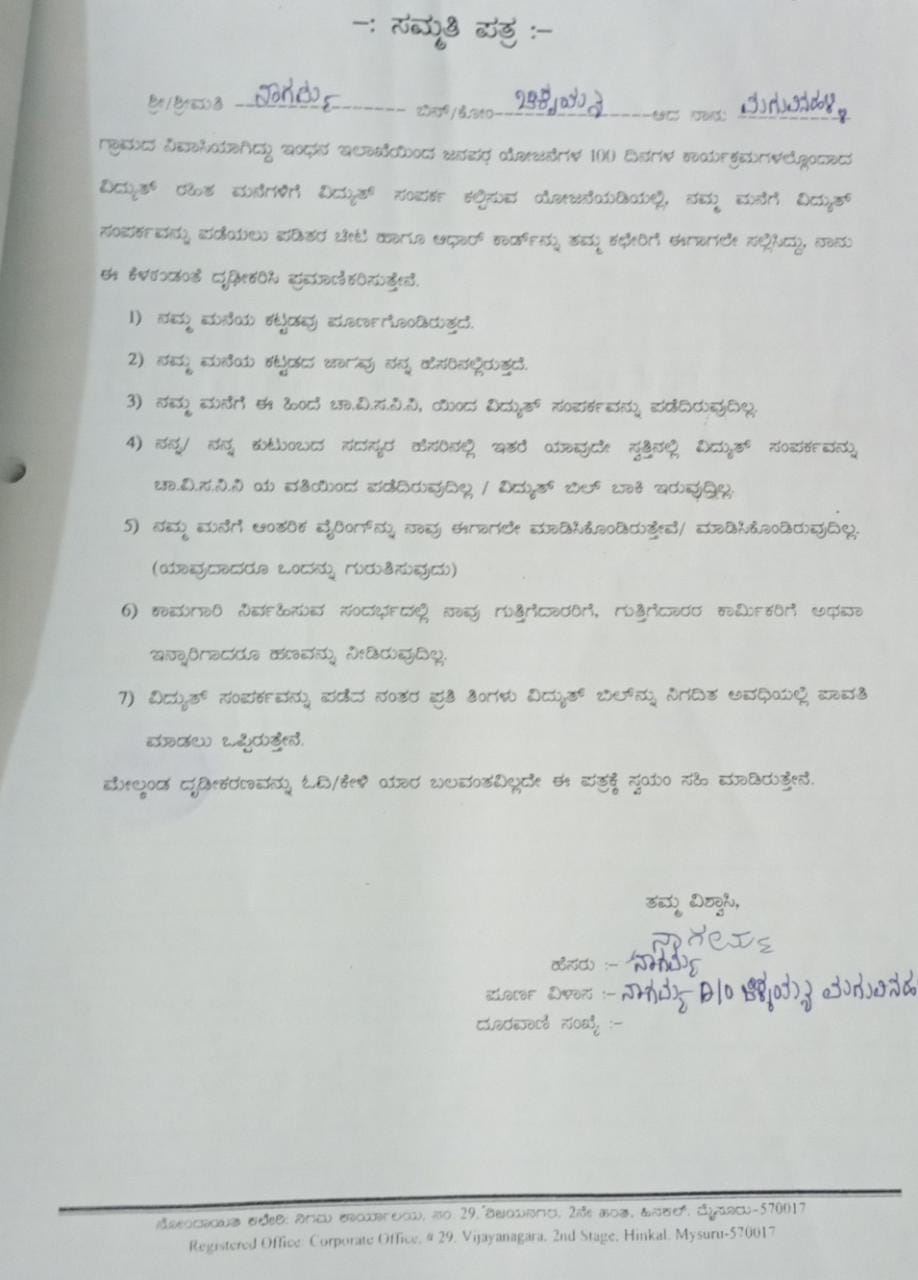 -: ಸಮ್ಮತಿ ಪತ್ರ :-
ಶ್ರೀ/ಶ್ರೀಮತಿ ನಾಗಮ್ಮ ಬಿನ್/ಕೋಂ ಚಿಕ್ಕಯ್ಯ ಆದ ನಾನು ಮಗುವಿನಹಳ್ಳಿ
ಗ್ರಾಮದ ನಿವಾಸಿಯಾಗಿದ್ದು ಇಂಧನ ಇಲಾಖೆಯಿಂದ ಜನಪರ ಯೋಜನೆಗಳ 100 ದಿನಗಳ ಕಾರ್ಯಕ್ರಮಗಳಲ್ಲೊಂದಾದ
ವಿದ್ಯುತ್ ರಹಿತ ಮನೆಗಳಿಗೆ ವಿದ್ಯುತ್ ಸಂಪರ್ಕ ಕಲ್ಪಿಸುವ ಯೋಜನೆಯಡಿಯಲ್ಲಿ, ನಮ್ಮ ಮನೆಗೆ ವಿದ್ಯುತ್
ಸಂಪರ್ಕವನ್ನು ಪಡೆಯಲು ಪಡಿತರ ಚೀಟಿ ಹಾಗೂ ಆಧಾರ್ ಕಾರ್ಡ್‌ನ್ನು ತಮ್ಮ ಕಛೇರಿಗೆ ಈಗಾಗಲೇ ಸಲ್ಲಿಸಿದ್ದು, ನಾನು
ಈ ಕೆಳಕಂಡಂತೆ ದೃಢೀಕರಿಸಿ ಪ್ರಮಾಣಿಕರಿಸುತ್ತೇನೆ.
1) ನಮ್ಮ ಮನೆಯ ಕಟ್ಟಡವು ಪೂರ್ಣಗೊಂಡಿರುತ್ತದೆ.
2) ನಮ್ಮ ಮನೆಯ ಕಟ್ಟಡದ ಜಾಗವು ನನ್ನ ಹೆಸರಿನಲ್ಲಿರುತ್ತದೆ.
3) ನಮ್ಮ ಮನೆಗೆ ಈ ಹಿಂದೆ ಚಾ.ವಿ.ಸ.ನಿ.ನಿ, ಯಿಂದ ವಿದ್ಯುತ್ ಸಂಪರ್ಕವನ್ನು ಪಡೆದಿರುವುದಿಲ್ಲ.
4) ನನ್ನ/ ನನ್ನ ಕುಟುಂಬದ ಸದಸ್ಯರ ಹೆಸರಿನಲ್ಲಿ ಇತರೆ ಯಾವುದೇ ಸ್ವತ್ತಿನಲ್ಲಿ ವಿದ್ಯುತ್ ಸಂಪರ್ಕವನ್ನು
ಚಾ.ವಿ.ಸ.ನಿ.ನಿ ಯ ವತಿಯಿಂದ ಪಡೆದಿರುವುದಿಲ್ಲ / ವಿದ್ಯುತ್ ಬಿಲ್ ಬಾಕಿ ಇರುವುದಿಲ್ಲ.
5) ನಮ್ಮ ಮನೆಗೆ ಆಂತರಿಕ ವೈರಿಂಗ್‌ನ್ನು ನಾವು ಈಗಾಗಲೇ ಮಾಡಿಸಿಕೊಂಡಿರುತ್ತೇವೆ/ ಮಾಡಿಸಿಕೊಂಡಿರುವುದಿಲ್ಲ.
(ಯಾವುದಾದರೂ ಒಂದನ್ನು ಗುರುತಿಸುವುದು)
6) ಕಾಮಗಾರಿ ನಿರ್ವಹಿಸುವ ಸಂದರ್ಭದಲ್ಲಿ ನಾವು ಗುತ್ತಿಗೆದಾರರಿಗೆ, ಗುತ್ತಿಗೆದಾರರ ಕಾರ್ಮಿಕರಿಗೆ ಅಥವಾ
ಇನ್ನಾರಿಗಾದರೂ ಹಣವನ್ನು ನೀಡಿರುವುದಿಲ್ಲ.
7) ವಿದ್ಯುತ್ ಸಂಪರ್ಕವನ್ನು ಪಡೆದ ನಂತರ ಪ್ರತಿ ತಿಂಗಳು ವಿದ್ಯುತ್ ಬಿಲ್‌ನ್ನು ನಿಗದಿತ ಅವಧಿಯಲ್ಲಿ ಪಾವತಿ
ಮಾಡಲು ಒಪ್ಪಿರುತ್ತೇನೆ.
ಮೇಲ್ಕಂಡ ದೃಢೀಕರಣವನ್ನು ಓದಿ/ಕೇಳಿ ಯಾರ ಬಲವಂತವಿಲ್ಲದೇ ಈ ಪತ್ರಕ್ಕೆ ಸ್ವಯಂ ಸಹಿ ಮಾಡಿರುತ್ತೇನೆ.
ತಮ್ಮ ವಿಶ್ವಾಸಿ,
ನಾಗಮ್ಮ
ಹೆಸರು :- ನಾಗಮ್ಮ
ಪೂರ್ಣ ವಿಳಾಸ :- ನಾಗಮ್ಮ D/O ಚಿಕ್ಕಯ್ಯ ಮಗುವಿನಹ
ದೂರವಾಣಿ ಸಂಖ್ಯೆ :-
ನೋಂದಾಯಿತ ಕಛೇರಿ: ನಿಗಮ ಕಾರ್ಯಾಲಯ, ನಂ. 29, ವಿಜಯನಗರ, 2ನೇ ಹಂತ, ಹಿನಕಲ್, ಮೈಸೂರು-570017
Registered Office: Corporate Office, # 29, Vijayanagara, 2nd Stage, Hinkal, Mysuru-570017